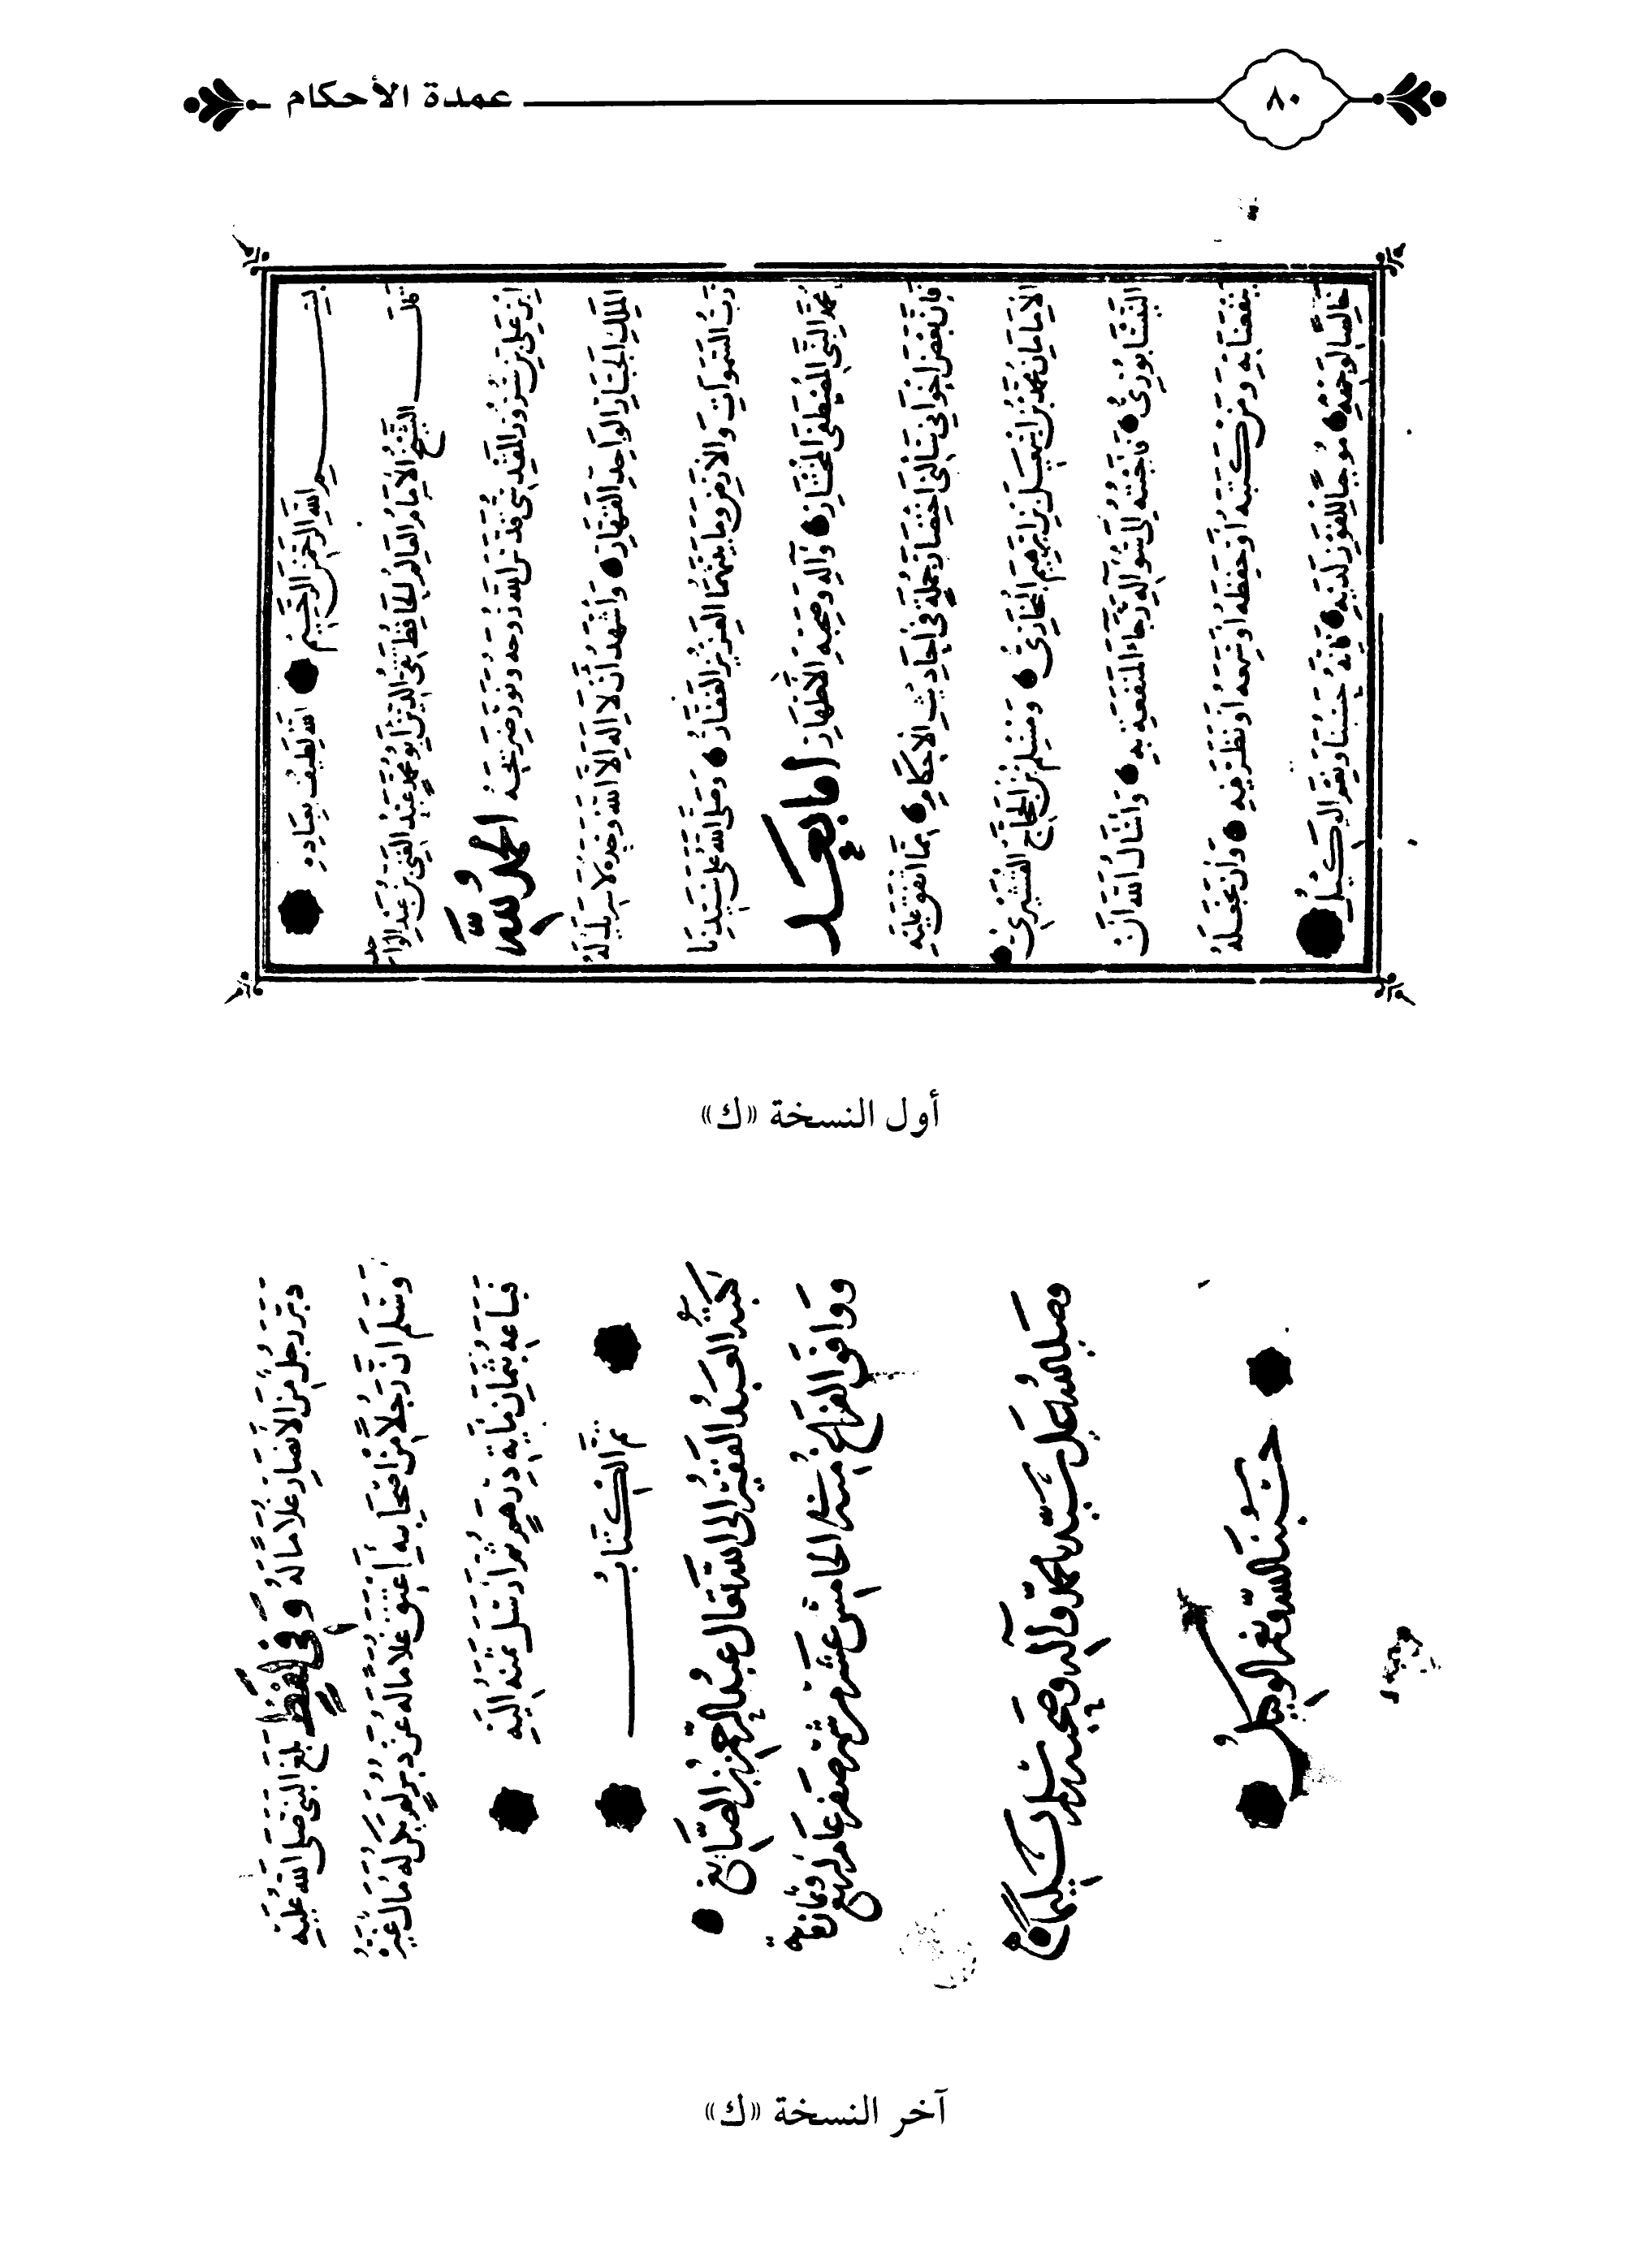 ٨٠
عمدة الأحكام
بسم الله الرحمن الرحيم الله لطيف بعباده
قال الشيخ الإمام العالم الحافظ تقي الدين أبو محمد عبد الغني بن عبد الواحد
ابن علي بن سرور المقدسي قدس الله روحه ونور ضريحه الحمد لله
الملك الجبار الواحد القهار وأشهد أن لا إله إلا الله وحده لا شريك له
رب السموات والأرض وما بينهما العزيز الغفار وصلى الله على سيدنا
محمد النبي المصطفى المختار وآله وصحبه الأطهار أما بعد
فإن بعض إخواني سألني اختصار جملة في أحاديث الأحكام مما اتفق عليه
الإمامان محمد بن إسمعيل بن إبراهيم البخاري ومسلم بن الحجاج القشيري
النيسابوري فأجبته إلى سؤاله رجاء المنفعة به وأسأل الله أن
ينفعنا به ومن كتبه أو حفظه أو سمعه أو نظر فيه وأن يجعله
خالصا لوجهه موجبا للفوز لديه فإنه حسبنا ونعم الوكيل
أول النسخة «ك»
دبر رجل من الأنصار غلاما له وفي لفظ بلغ النبي صلى الله عليه
وسلم أن رجلا من أصحابه أعتق غلاما له عن دبر لم يكن له مال غيره
فباعه بثمان مائة درهم ثم أرسل ثمنه إليه
تم الكتاب
العبد الفقير إلى الله تعالى عبد العزيز الصايغ
ووافق الفراغ منه الخامس عشر من شهر صفر عام أربع وثمانمائة
وصلى الله على سيدنا محمد وآله وصحبه وسلم تسليما
حسبنا الله ونعم الوكيل
آخر النسخة «ك»